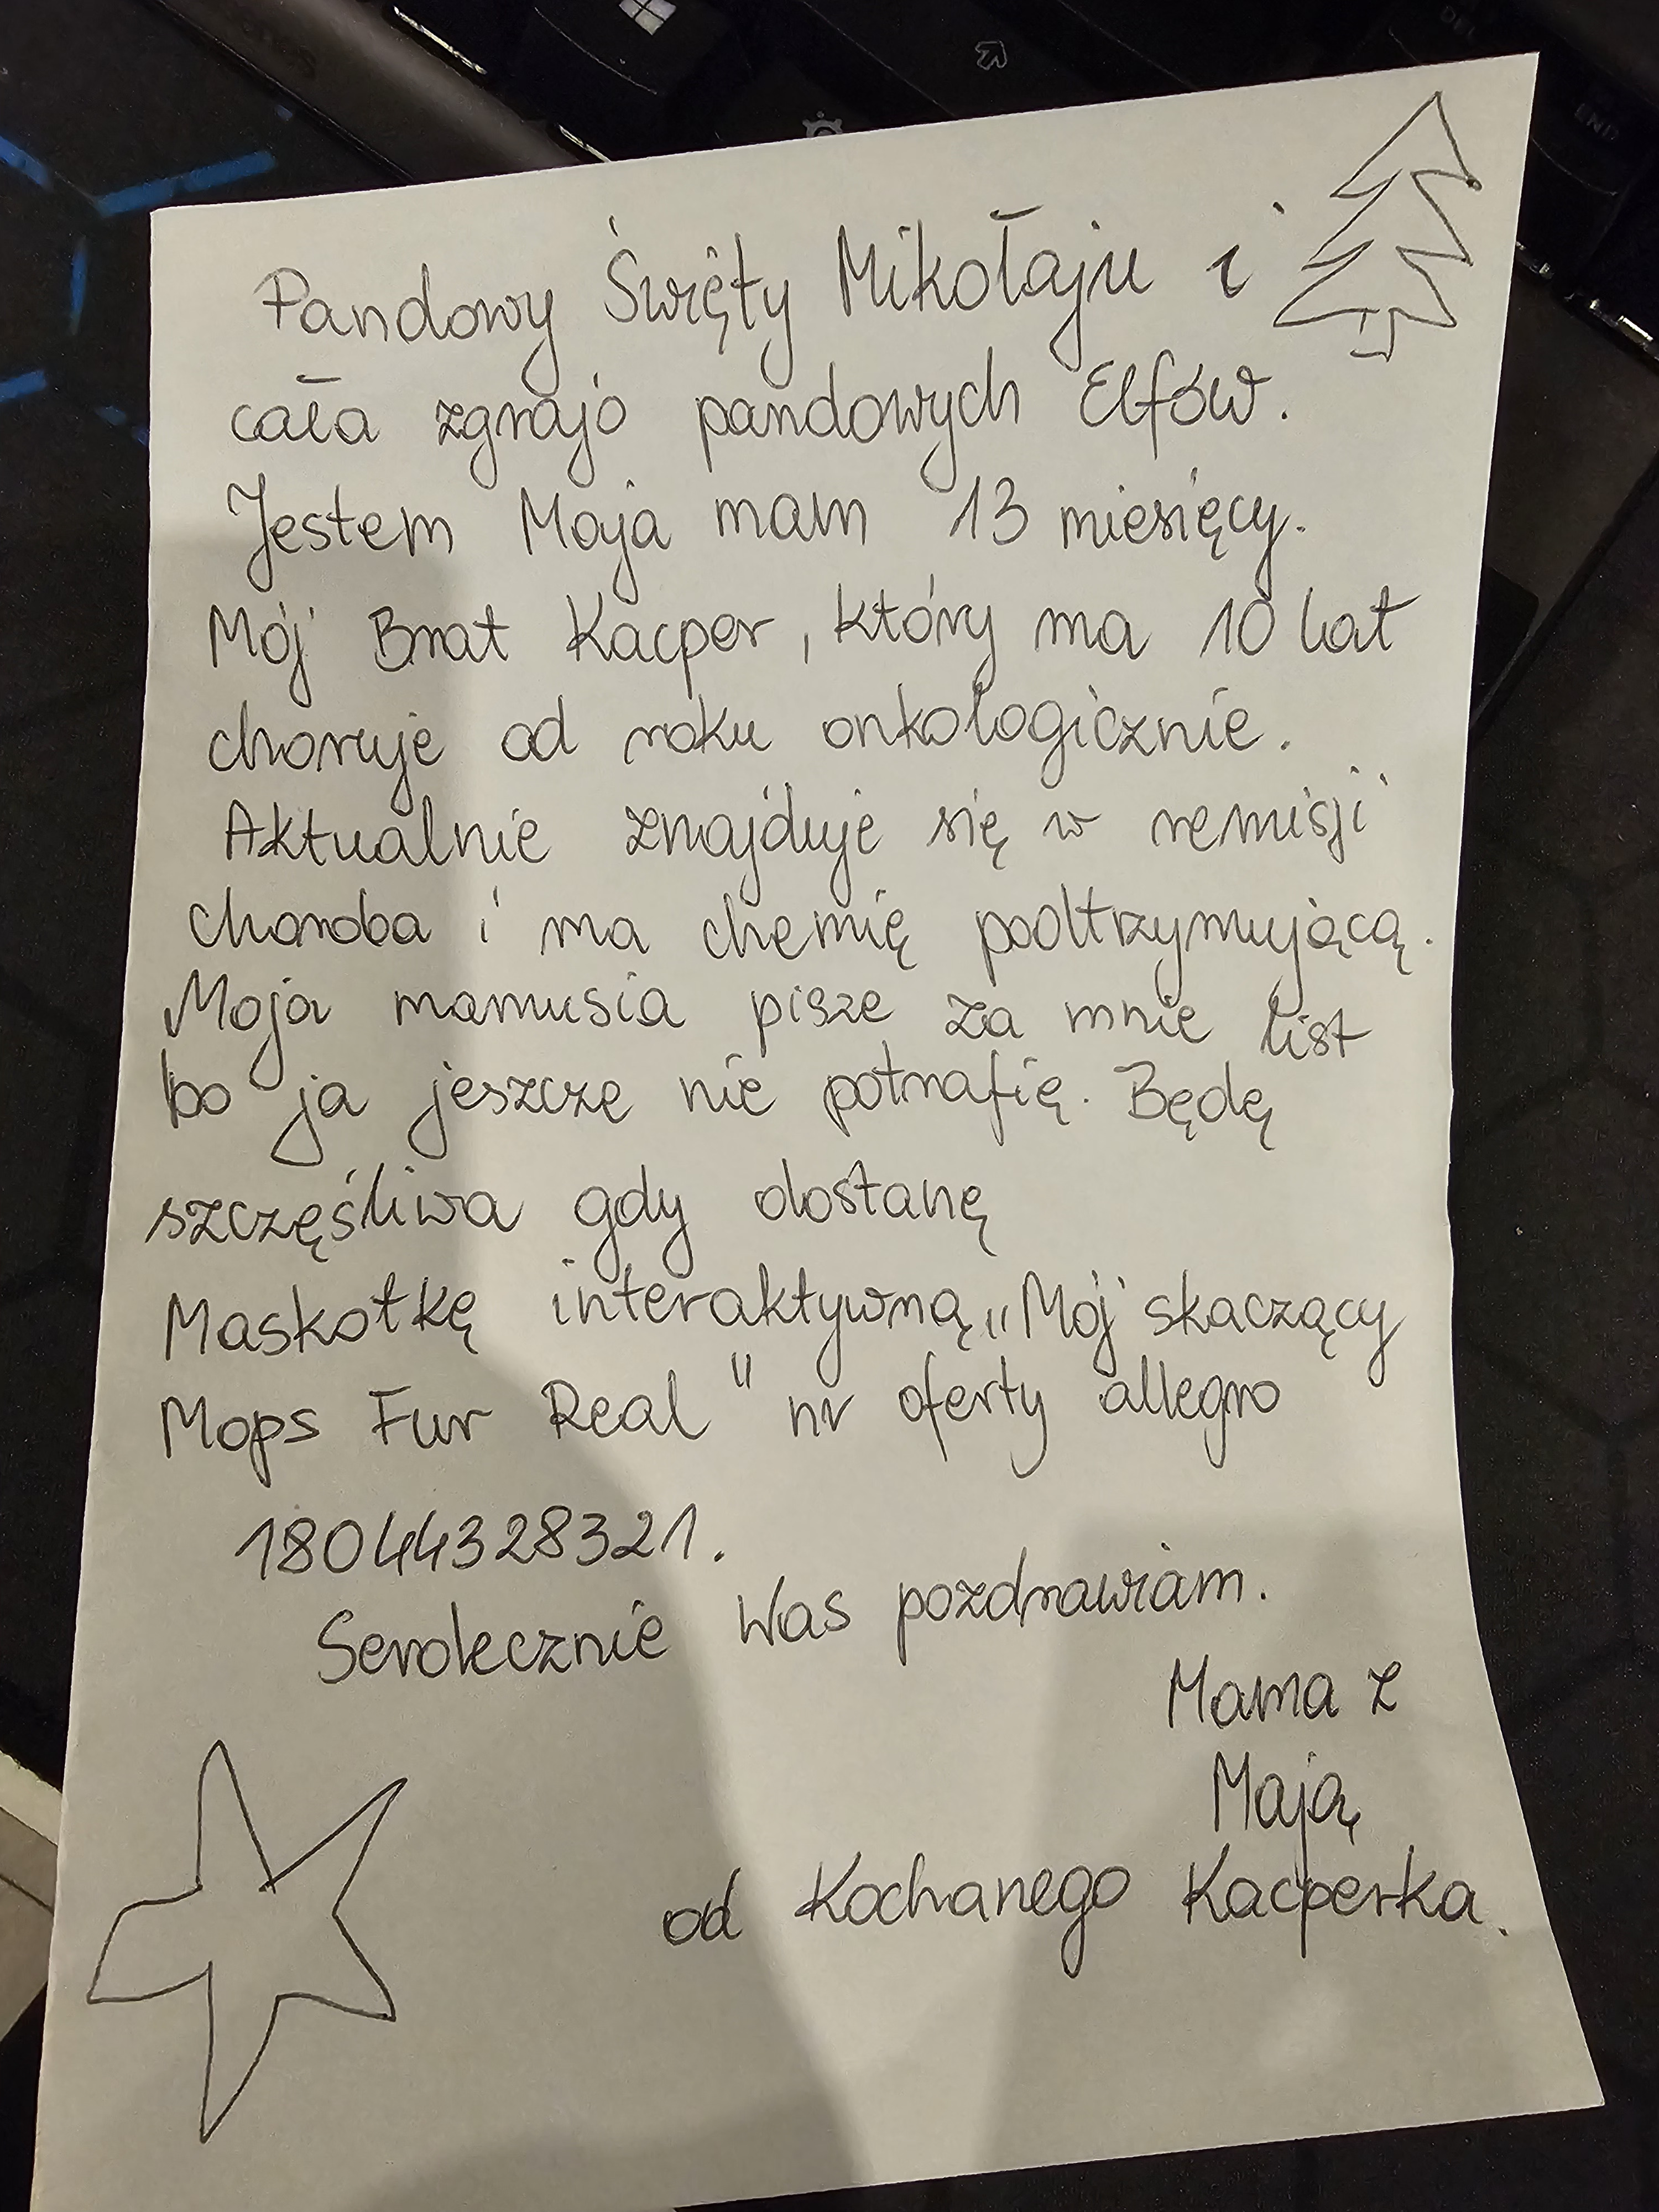 Pandowy Święty Mikołaju i
cała zgrajo pandowych Elfów.
Jestem Maja mam 13 miesięcy.
Mój Brat Kacper, który ma 10 lat
choruje od roku onkologicznie.
Aktualnie znajduje się w remisji
choroba i ma chemię podtrzymującą.
Moja mamusia pisze za mnie list
bo ja jeszcze nie potrafię. Będę
szczęśliwa gdy dostanę
Maskotkę interaktywną „Mój skaczący
Mops Fur Real" nr oferty allegro
18044328321.
Serdecznie Was pozdrawiam.
Mama z
Mają
od Kochanego Kacperka.
END
DEL